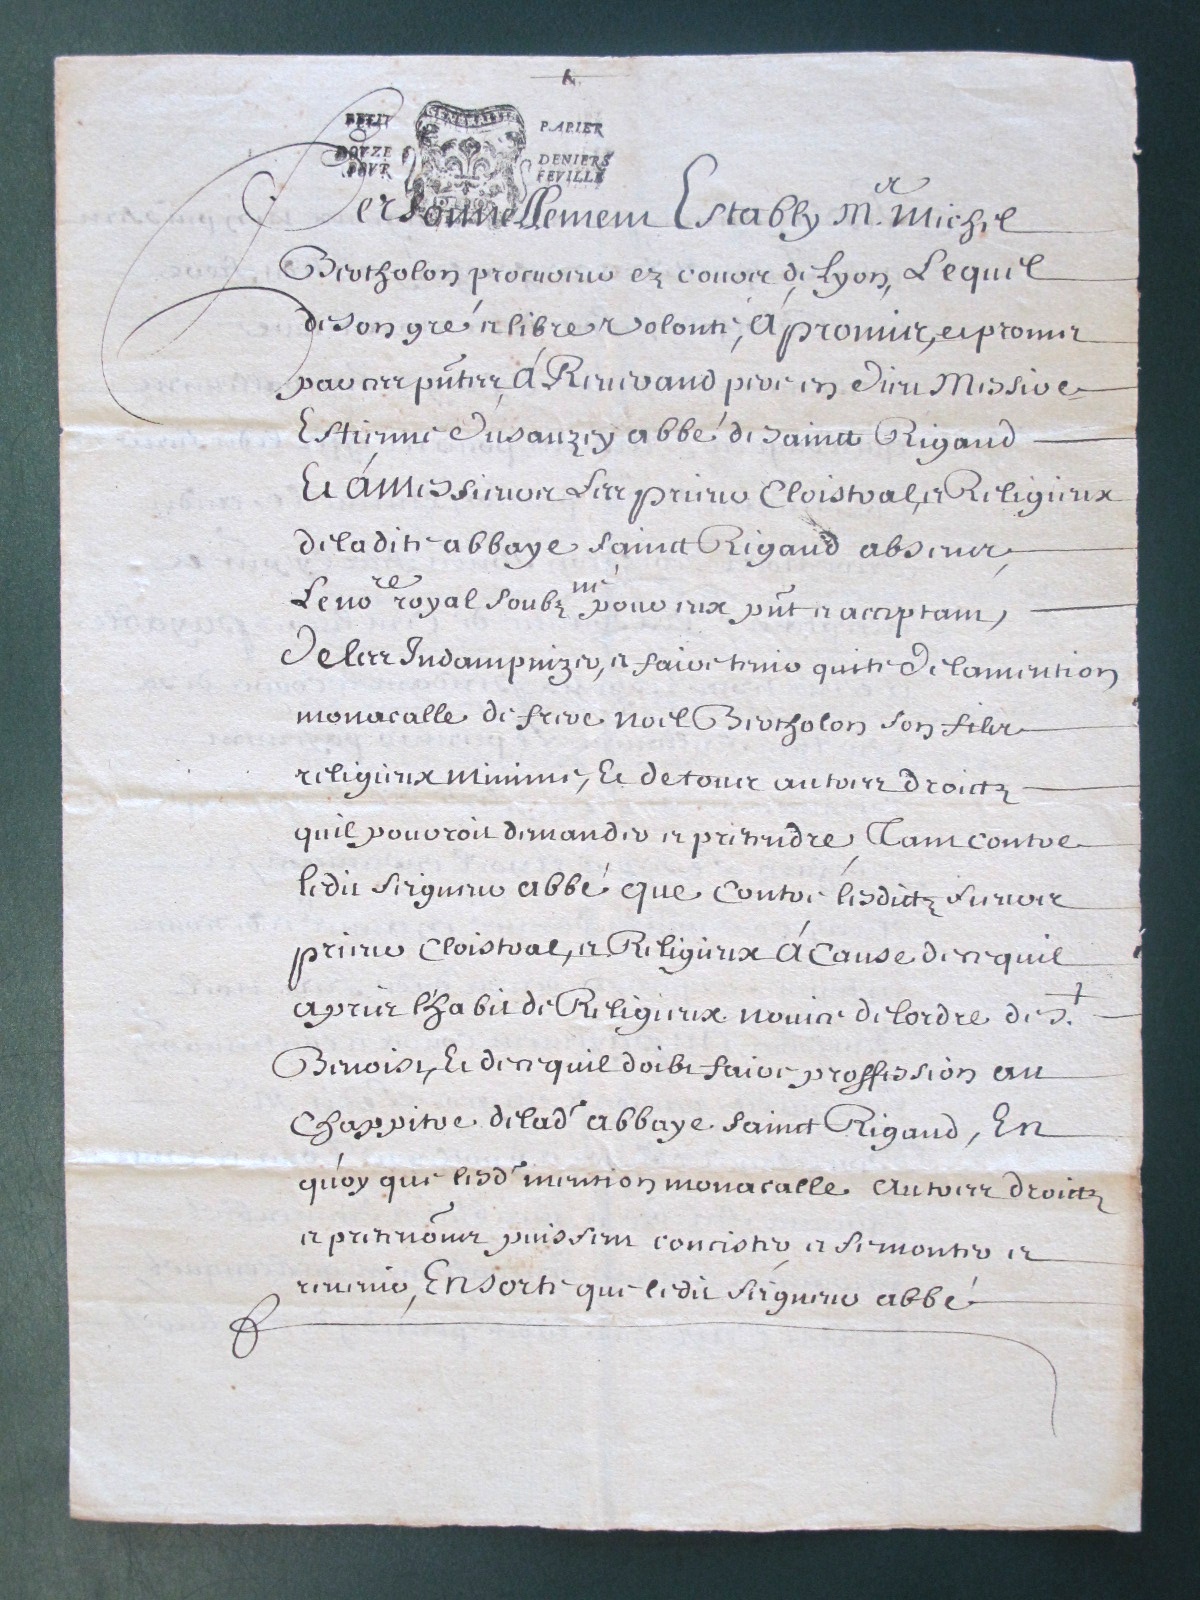 PETIT PAPIER
DOVZE DENIERS
POVR FEVILLE
Personnellement Estably Mr. Michel
Bertholon procureur ez cours de Lyon, Lequel
de son gré et libre volonté, á promis, et promet
par ces pntes, Á Reverand pere en dieu Messire
Estienne Dusauzey abbé de sainct Rigaud
Et á Messieurs Les prieur Cloistral, et Religieux
de la dite abbaye sainct Rigaud absens,
Le nore royal soubzné pour eux pnt et acceptant,
De les Indampnizer, et faire tenir quite de la mention
monacalle de frere Noel Bertholon son fils
religieux minime, Et de tous autres droictz
quil pouvroit demander et pretendre, Tant contre
ledit seigneur abbé que contre lesdictz sieurs
prieur Cloistral, et Religieux Á Cause de ce quil
a pris l'habit de Religieux novice de lordre de St.
Benoist, Et de ce quil doibt faire proffession au
Chappitre de lad abbaye sainct Rigaud, En
quoy que lesd mention monacalle autres droictz
et pretentions puissent concister et se monter et
revenir, En sorte que ledit seigneur abbé